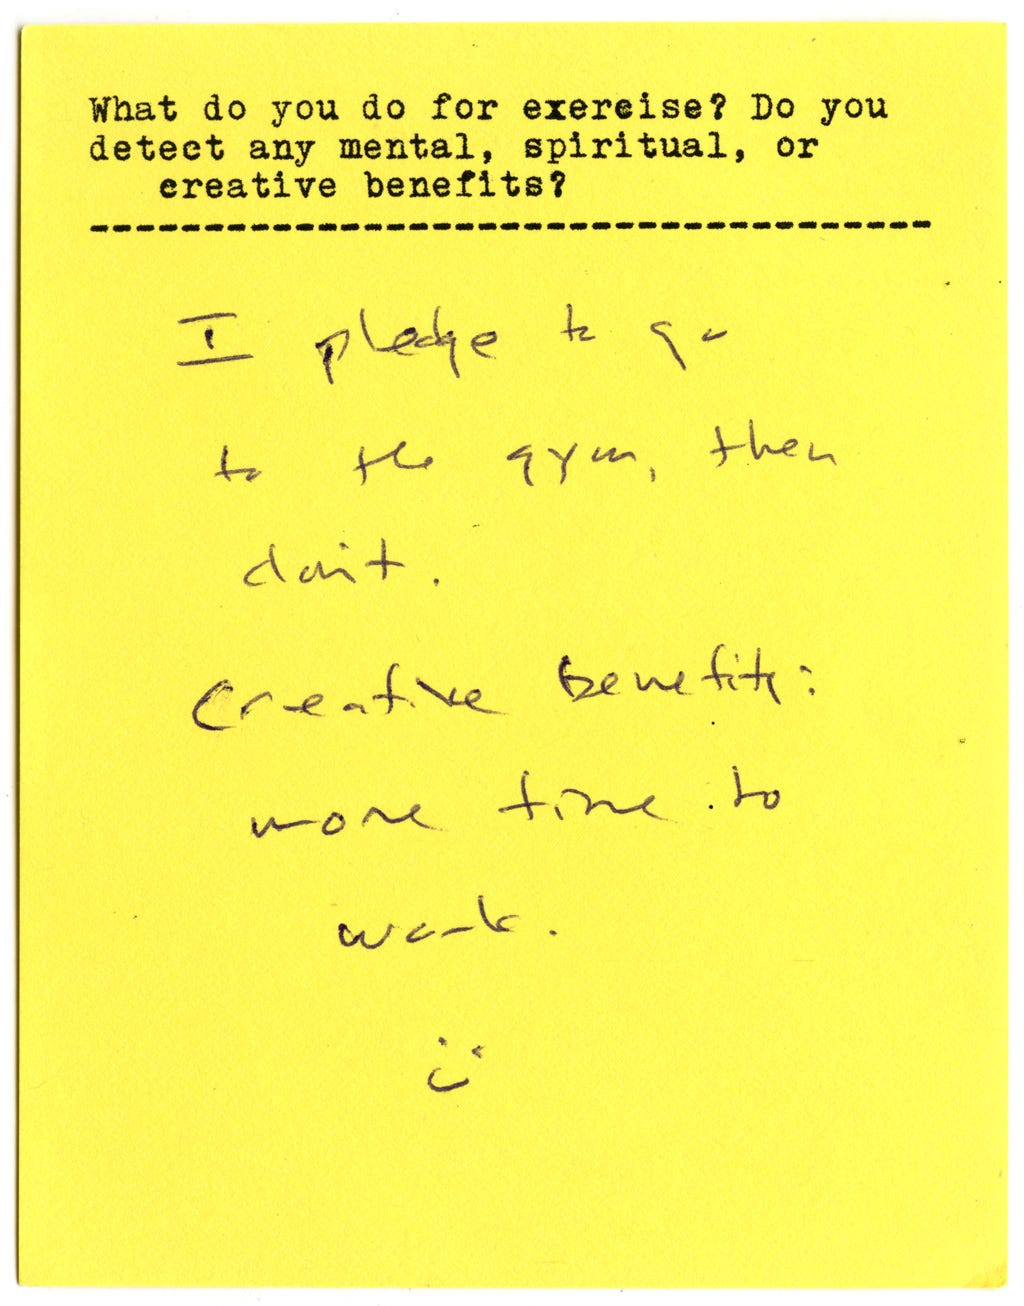 What do you do for exercise? Do you
detect any mental, spiritual, or
creative benefits?
I pledge to go
to the gym, then
don't.
Creative benefits:
more time to
work.